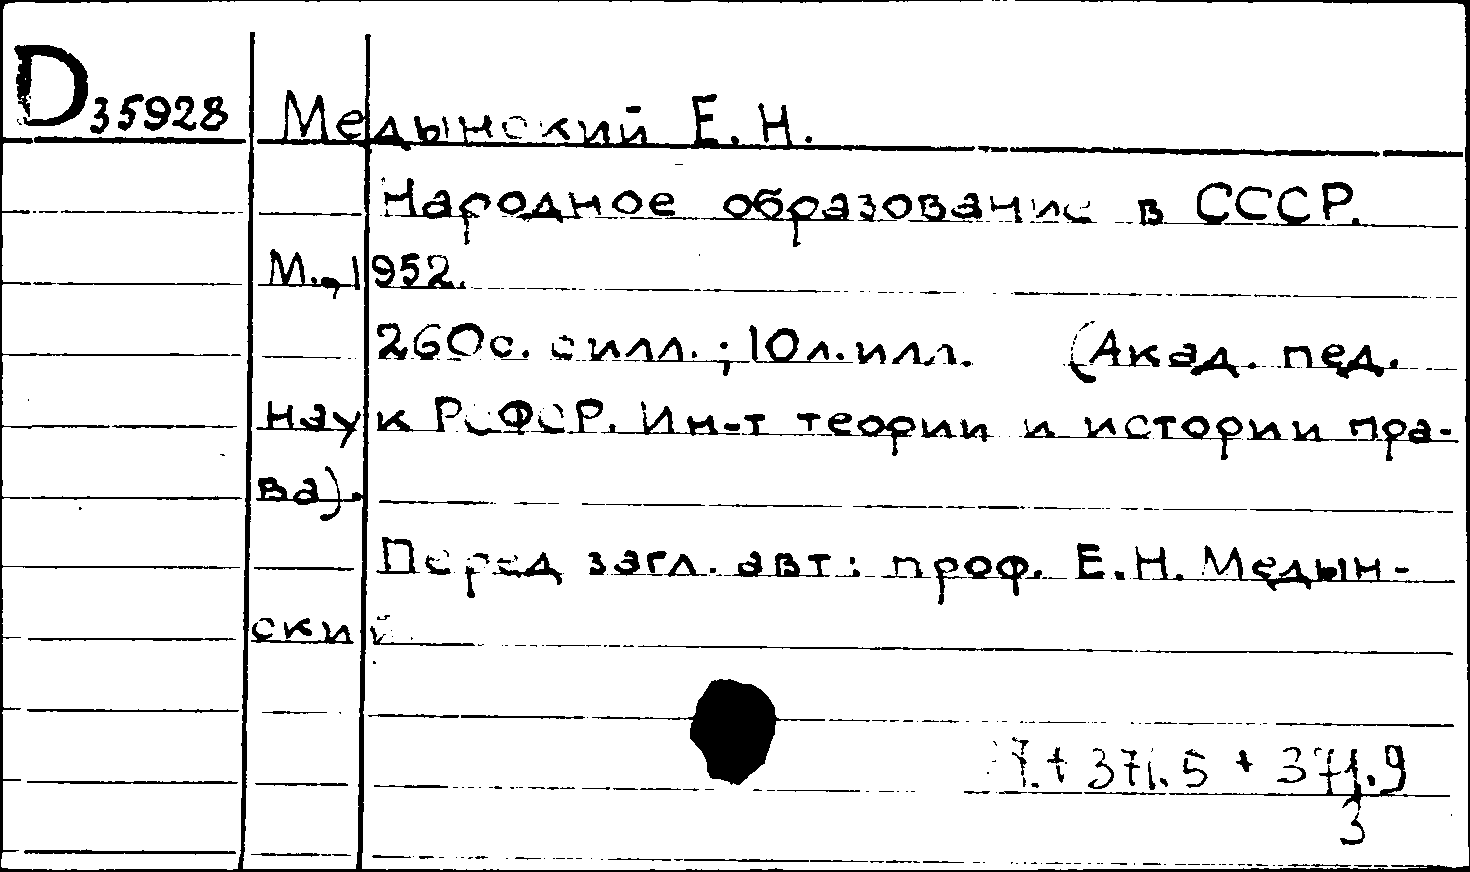 D 35928 Медынский Е. Н.
Народное образование в СССР.
М., 1952.
260с. с илл.; 10л. илл. (Акад. пед.
наук РСФСР. Ин-т теории и истории пра-
ва).
Перед загл. авт: проф. Е.Н. Медын-
ский
+ 371.5 + 371.9
3